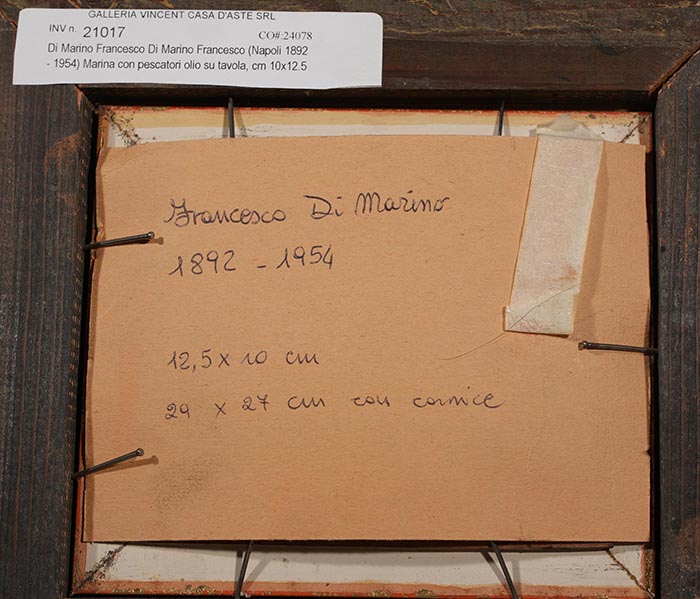 GALLERIA VINCENT CASA D'ASTE SRL
INV n. 21017 CO#:24078
Di Marino Francesco Di Marino Francesco (Napoli 1892
- 1954) Marina con pescatori olio su tavola, cm 10x12.5
Francesco Di Marino
1892 - 1954
12,5 x 10 cm
29 x 27 cm con cornice